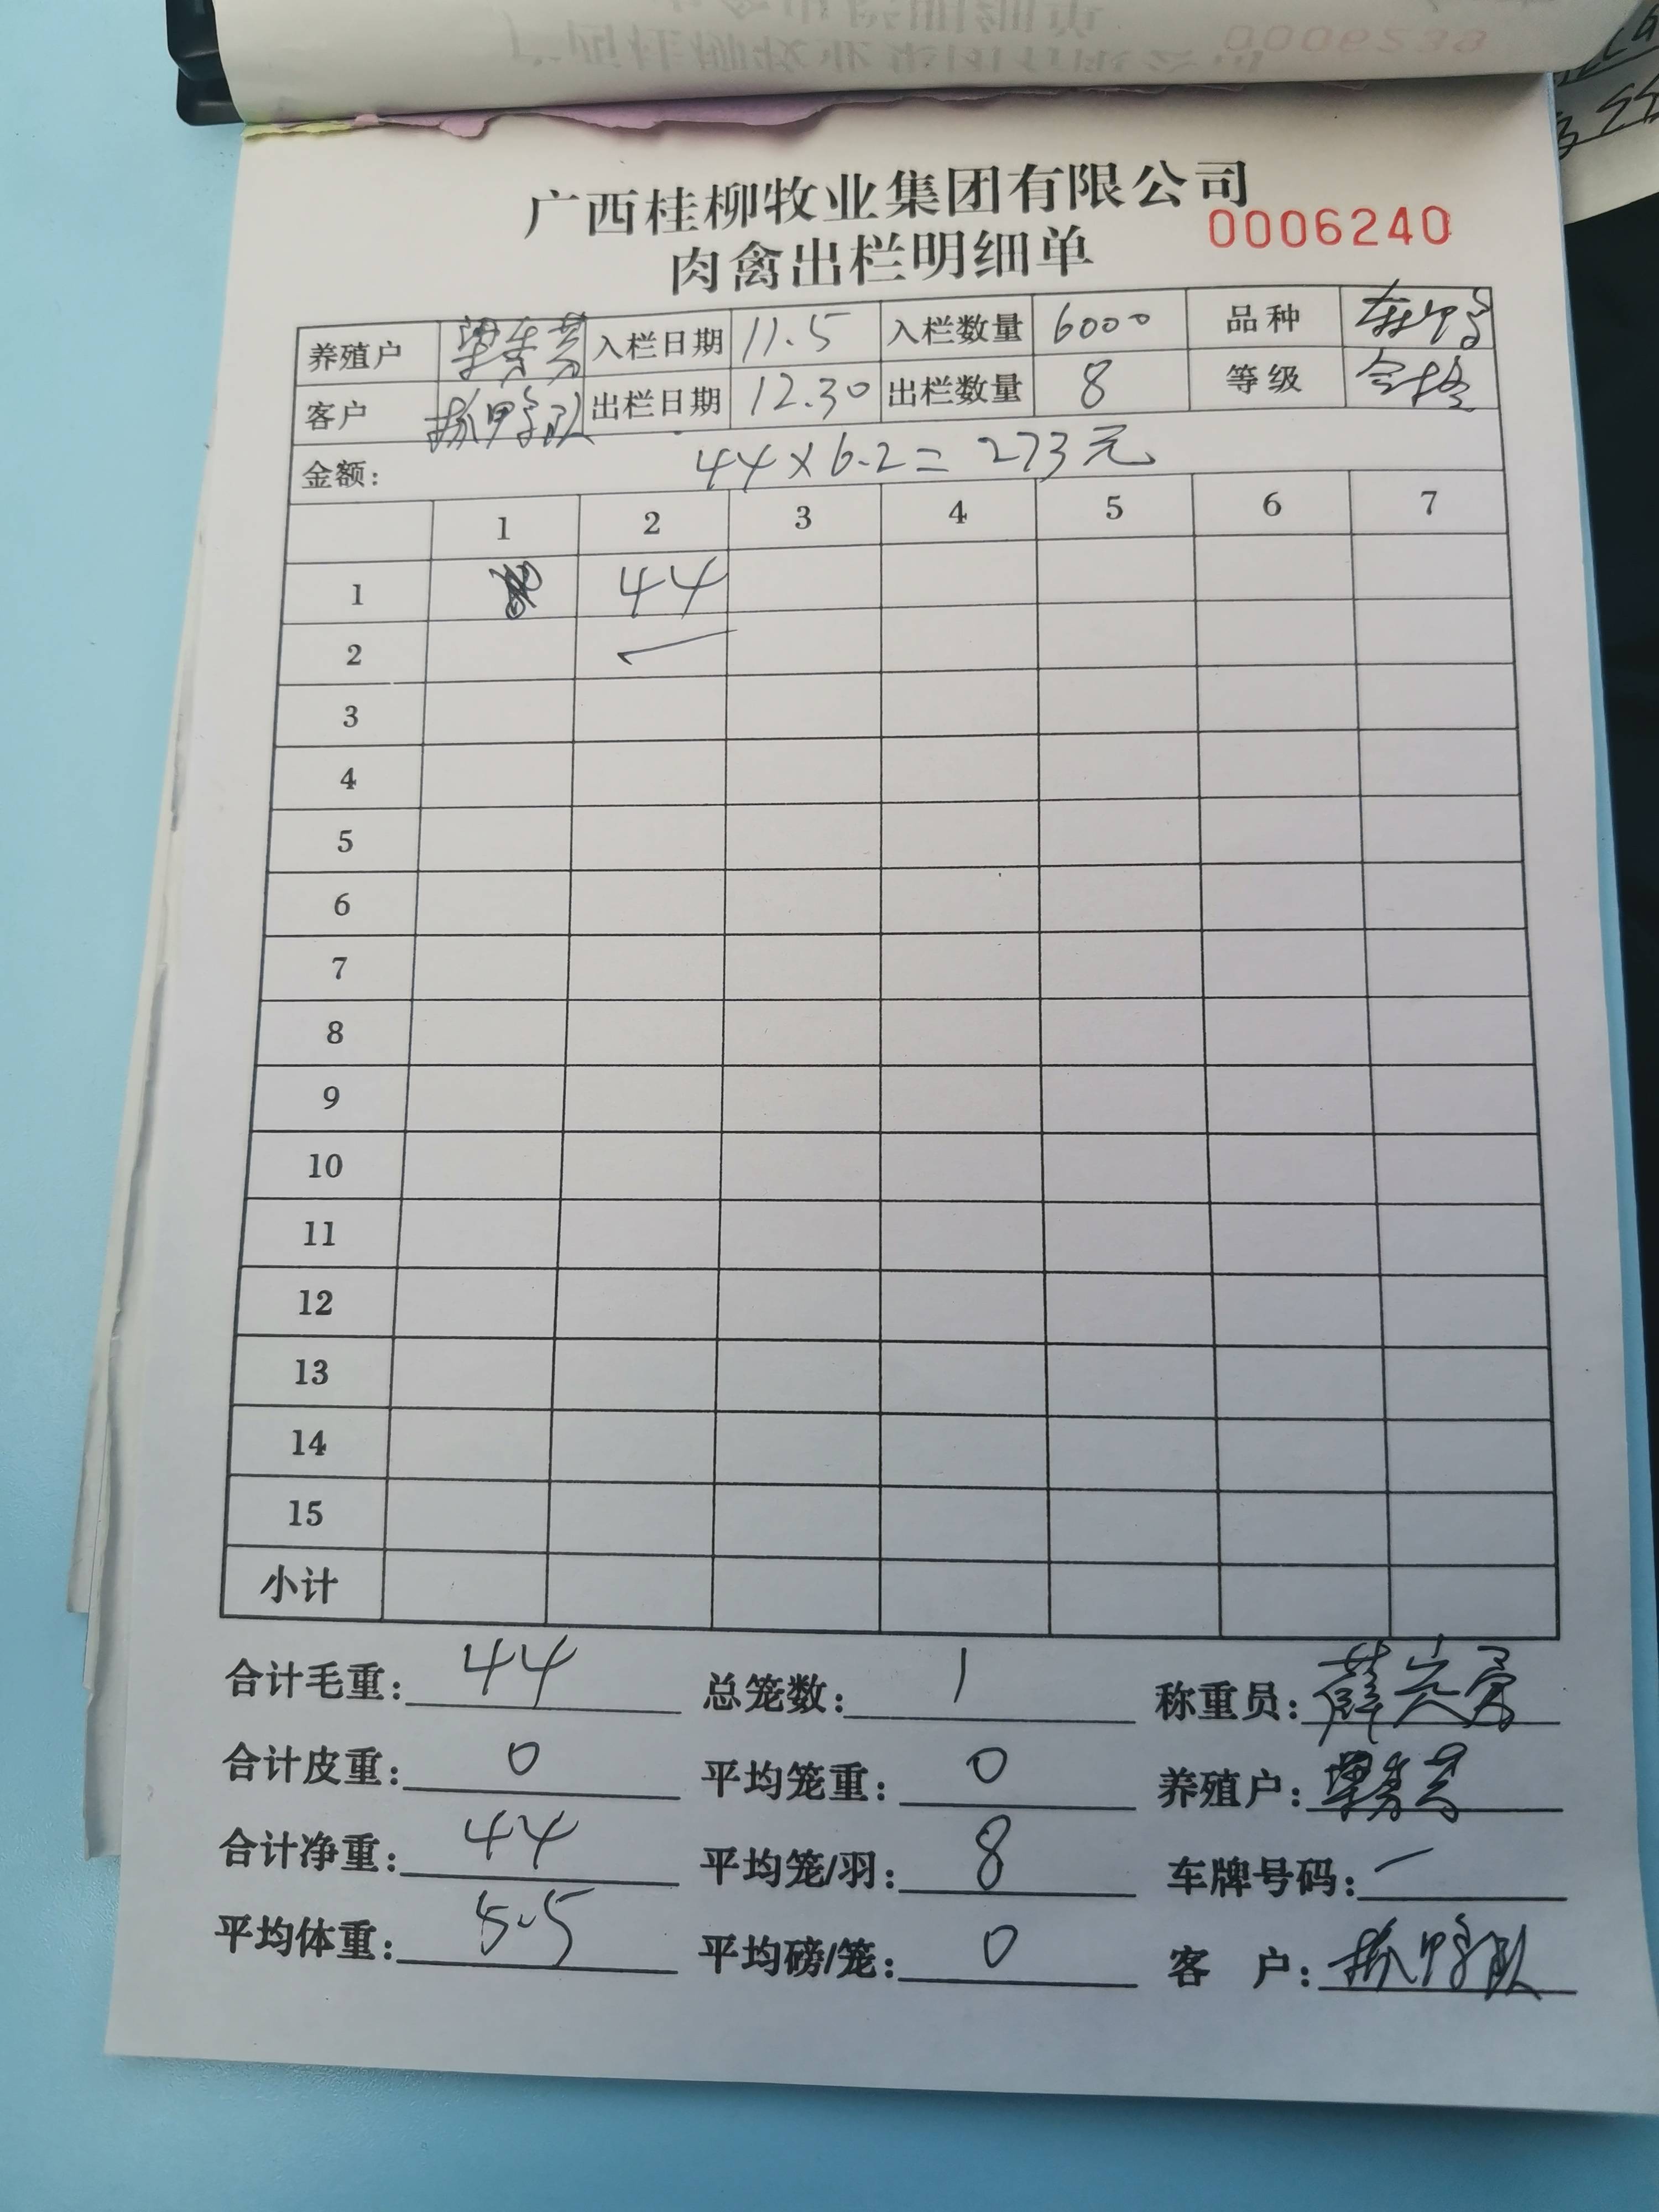 广西桂柳牧业集团有限公司
0006240
肉禽出栏明细单
养殖户 入栏日期 11.5 入栏数量 6000 品种
客户 抓鸭队 出栏日期 12.30 出栏数量 8 等级 合格
金额: 44×6.2=273元
1 2 3 4 5 6 7
1 44
2
3
4
5
6
7
8
9
10
11
12
13
14
15
小计
合计毛重: 44 总笼数: 1 称重员:
合计皮重: 0 平均笼重: 0 养殖户:
合计净重: 44 平均笼/羽: 8 车牌号码: 一
平均体重: 5.5 平均磅/笼: 0 客 户: 抓鸭队